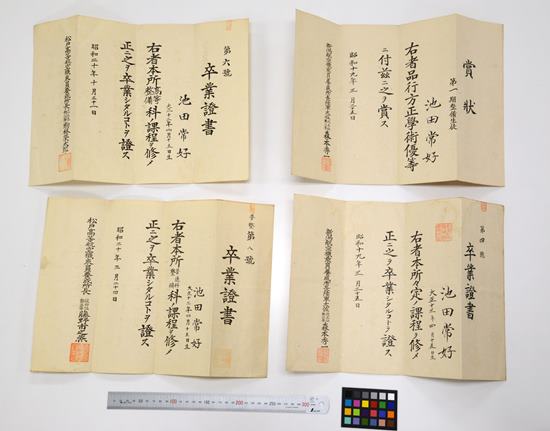 第六號
卒業證書
池田常好
大正十三年四月十五日生
右者本所高等整備科課程ヲ修メ
正ニ之ヲ卒業シタルコトヲ證ス
昭和二十年十月三十一日
賞狀
第一期整備生徒
池田常好
右者品行方正學術優等
ニ付茲ニ之ヲ賞ス
昭和十九年三月二十五日
第八號
卒業證書
池田常好
大正十三年四月十五日生
右者本所
科課程ヲ修メ
正ニ之ヲ卒業シタルコトヲ證ス
昭和二十年三月二十四日
松戸高等航空機乘員養成所長
第四號
卒業證書
池田常好
大正十三年四月十五日生
右者本所々定ノ課程ヲ修メ
正ニ之ヲ卒業シタルコトヲ證ス
昭和十九年三月二十五日
100
200
300